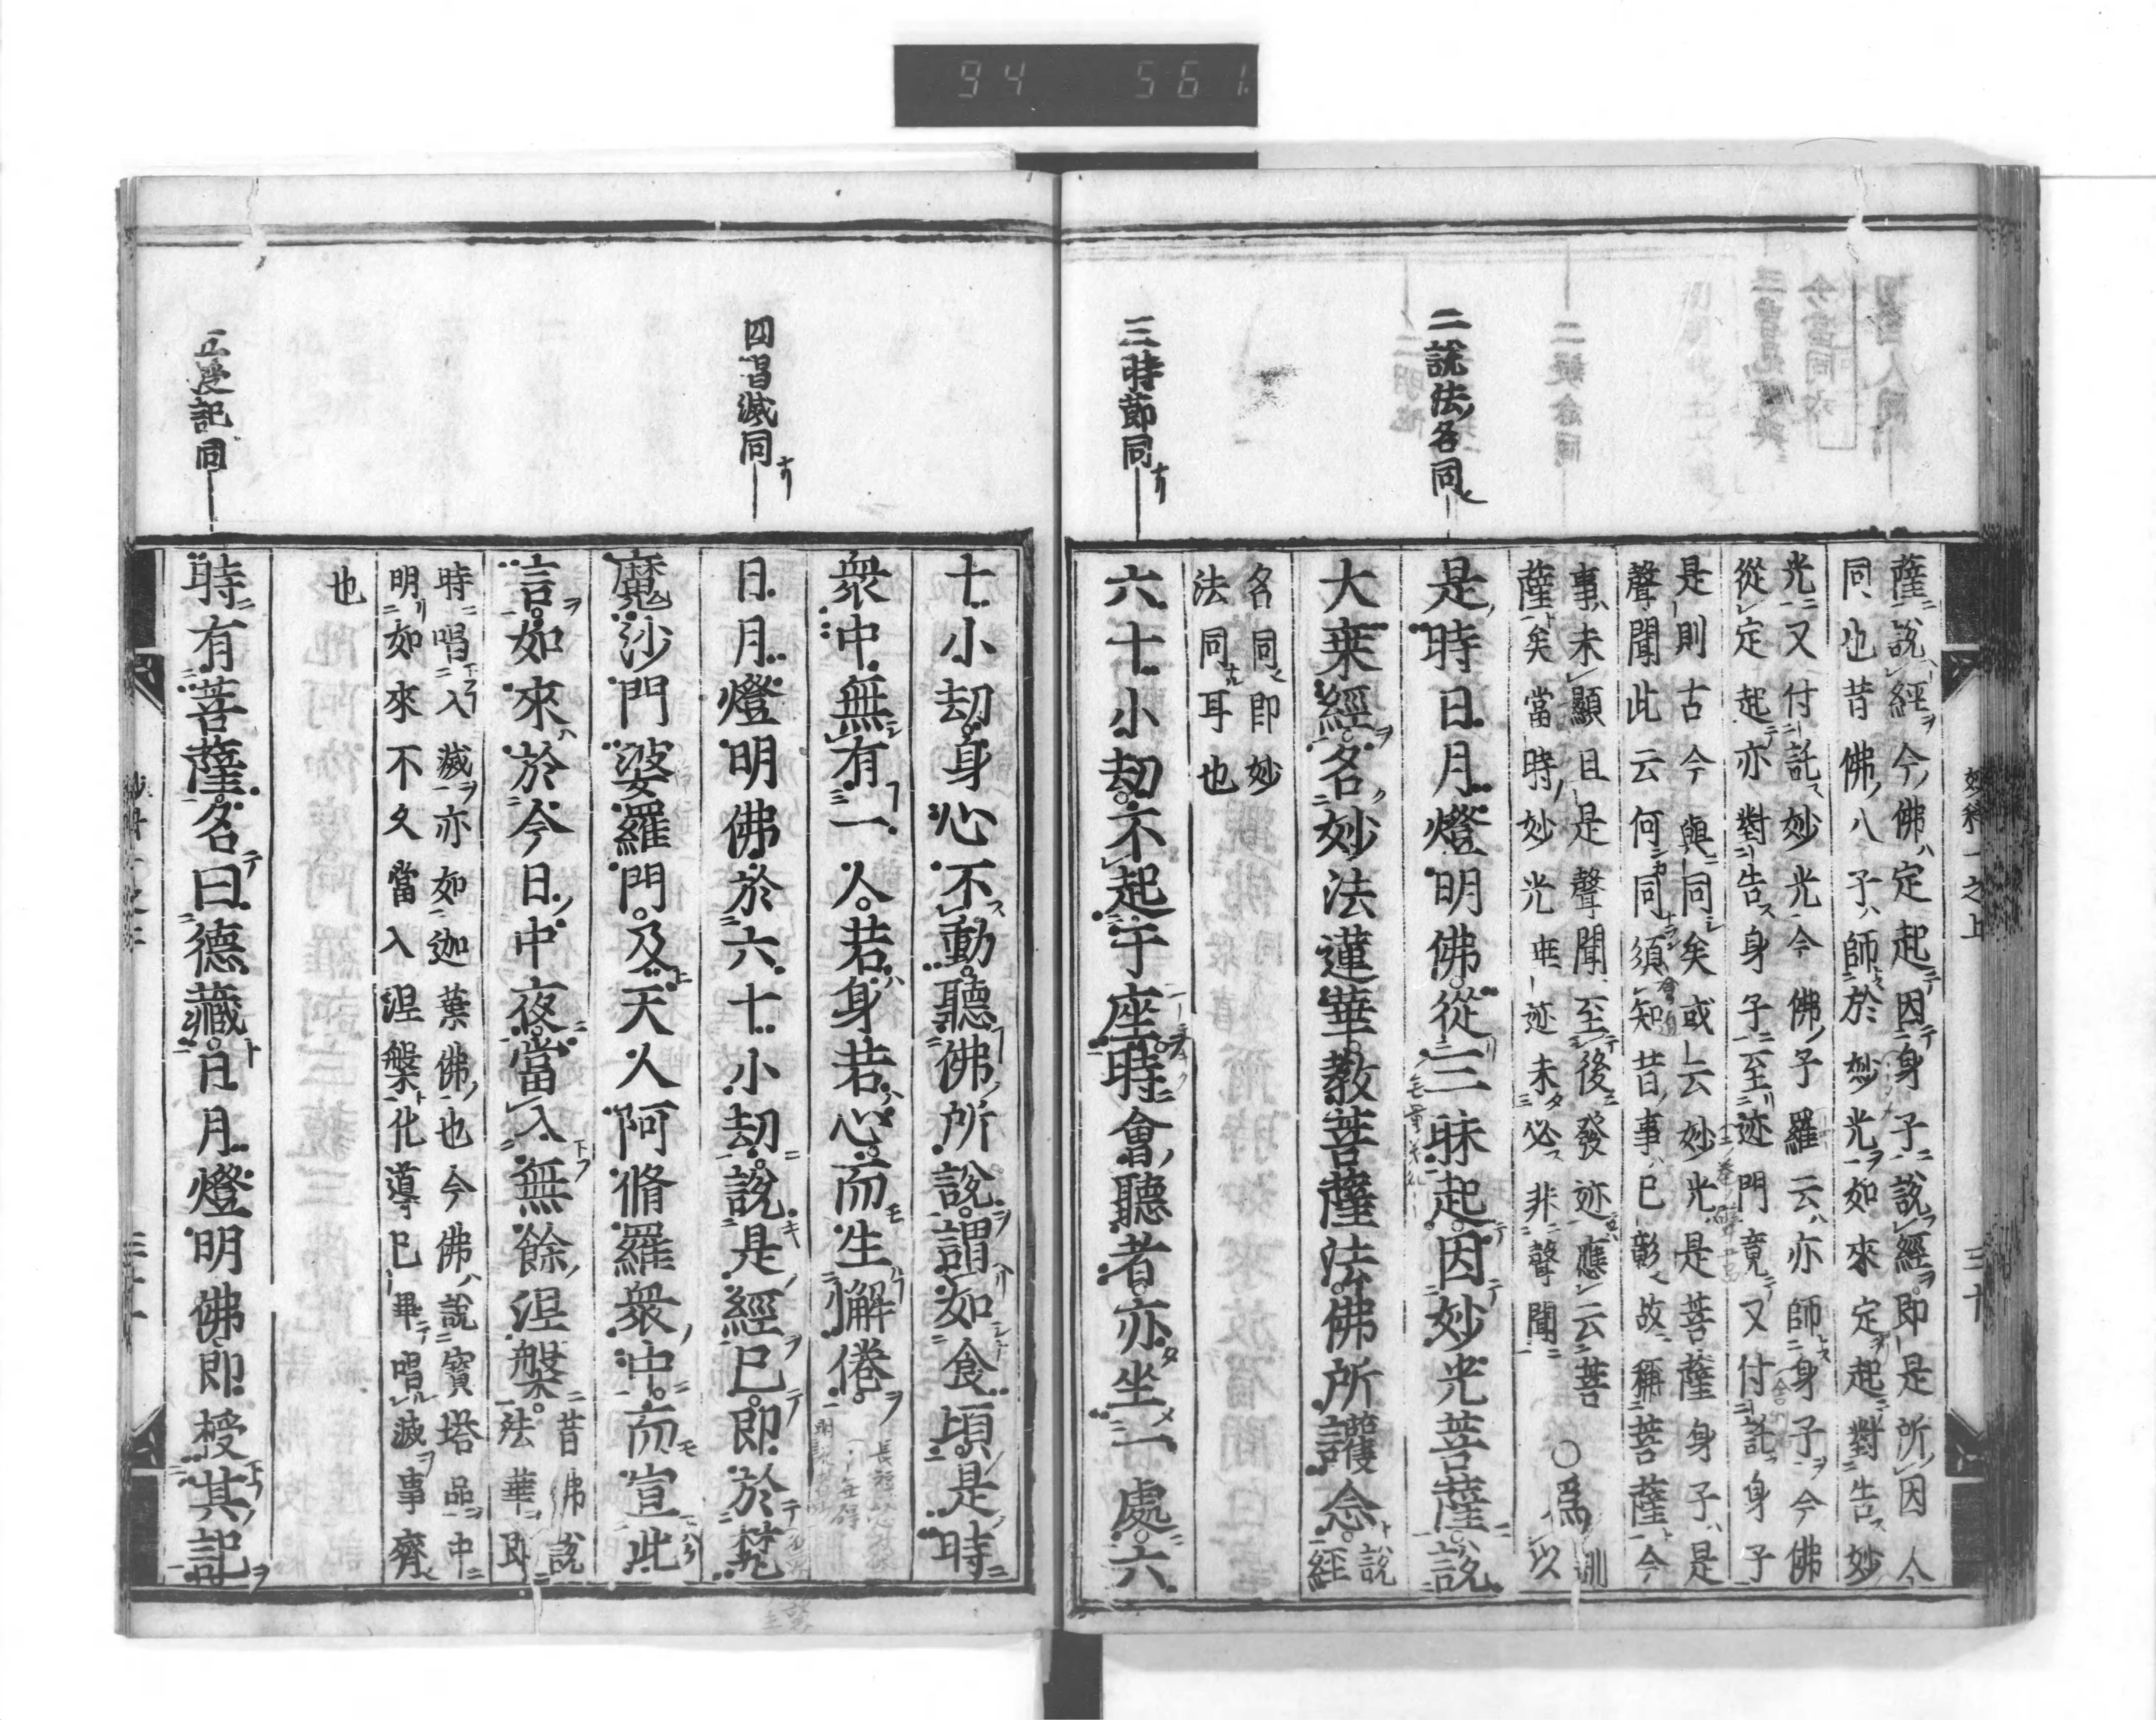 94 561
薩說經今佛定起因身子說經即是所因人
同也昔佛八子師於妙光如來定起對告妙
光又付託妙光今佛子羅云亦師身子今佛
從定起亦對告身子至迹門竟又付託身子
是則古今與同矣或云妙光是菩薩身子是
聲聞此云何同須知昔事已彰故稱菩薩今
事未顯且是聲聞至後發迹應云菩
薩矣當時妙光垂迹未必非聲聞 〇爲以
二說法名同
是時日月燈明佛從三昧起因妙光菩薩說
大乗經名妙法蓮華教菩薩法佛所護念
說經
名同即妙
法同耳也
三時節同
六十小劫不起于座時會聽者亦坐一處六
十小劫身心不動聽佛所說謂如食頃是時
衆中無有一人若身若心而生懈倦
四唱滅同
日月燈明佛於六十小劫說是經已即於梵
魔沙門婆羅門及天人阿脩羅衆中而宣此
言如來於今日中夜當入無餘涅槃
昔佛說
法華即
時唱入滅亦如迦葉佛也今佛說寳塔品中
明如來不久當入涅槃化導已畢唱滅事齊
也
五受記同
時有菩薩名曰德藏日月燈明佛即授其記
妙科一之上
三十